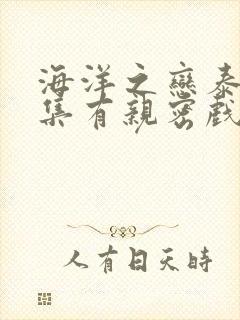 海洋之戀泰
集有親密戲
人有日天時